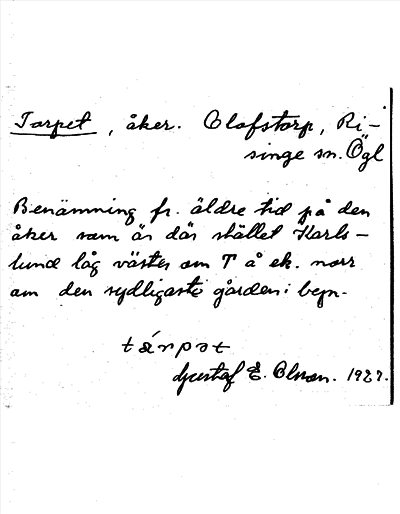 Torpet, åker. Olofstorp, Ri-
singe sn. Ögl
Benämning fr. äldre tid på den
åker som är där stället Karls-
lund låg väster om T å ek. norr
om den sydligaste gården i byn.
tárpət
Gustaf E. Olson. 1927.